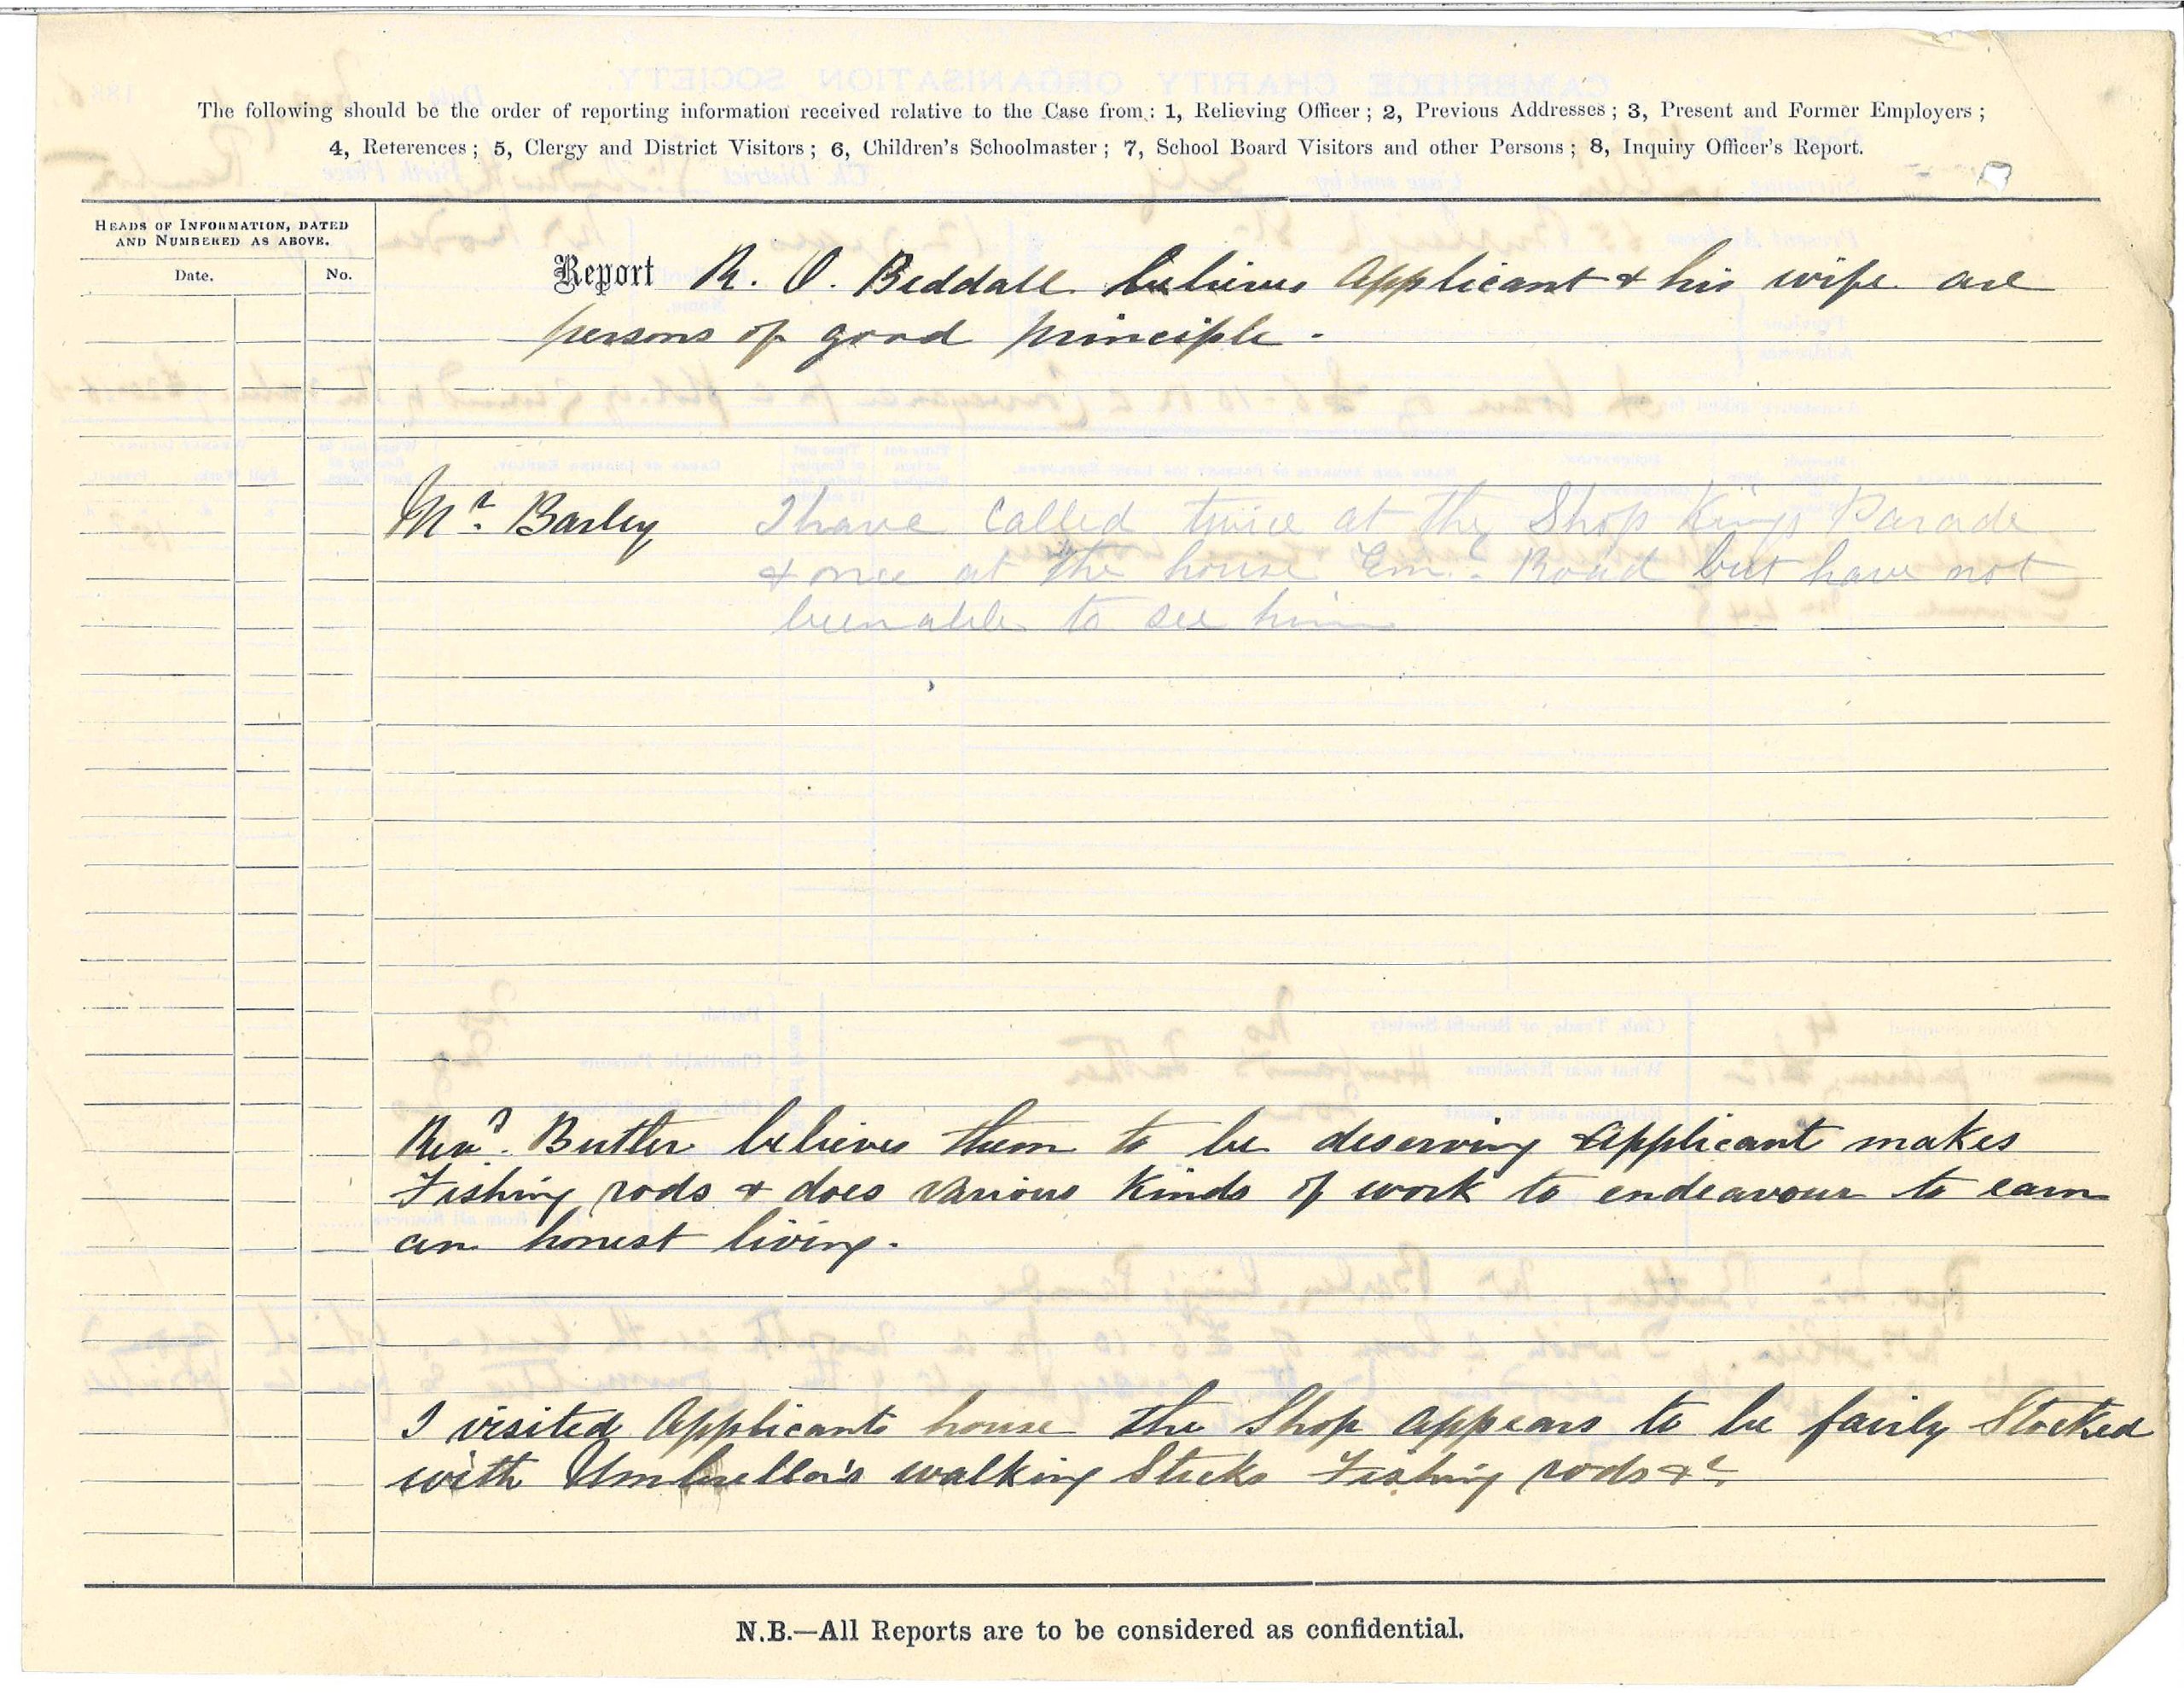 The following should be the order of reporting information received relative to the Case from: 1, Relieving Officer; 2, Previous Addresses; 3, Present and Former Employers;
4, References; 5, Clergy and District Visitors; 6, Children's Schoolmaster; 7, School Board Visitors and other Persons; 8, Inquiry Officer's Report.
HEADS OF INFORMATION, DATED
AND NUMBERED AS ABOVE.
Date. No.
Report R. O. Beddall believes Applicant & his wife are
persons of good principle.
Mr. Barley I have called twice at the Shop Kings Parade
& once at the house Em. Road but have not
been able to see him
Revd. Butler believes them to be deserving Applicant makes
Fishing rods & does various Kinds of work to endeavour to earn
an honest living.
I visited Applicants house the Shop appears to be fairly Stocked
with Umbrella's walking Sticks Fishing rods &c.
N.B.—All Reports are to be considered as confidential.